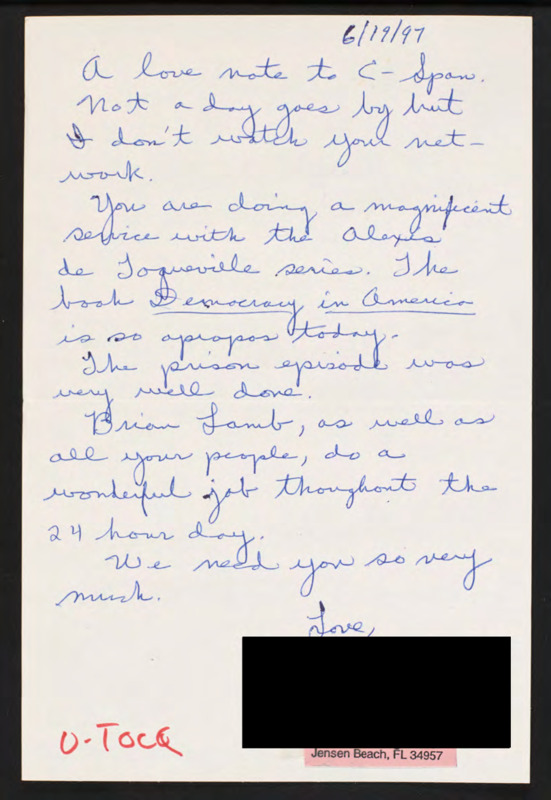 6/19/97
A love note to C-Span.
Not a day goes by but
I don't watch your net-
work.
You are doing a magnificent
service with the Alexis
de Toqueville series. The
book Democracy in America
is so apropos today.
The prison episode was
very well done.
Brian Lamb, as well as
all your people, do a
wonderful job thoughout the
24 hour day.
We need you so very
much.
Love,
Jensen Beach, FL 34957
U-TOCQ